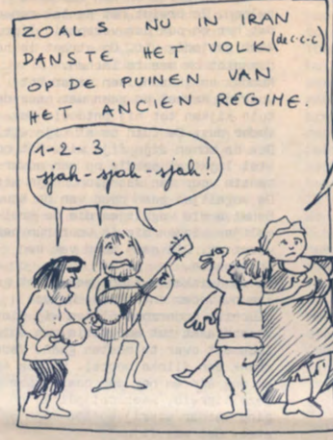 ZOALS NU IN IRAN
DANSTE HET VOLK (de c-c-c)
OP DE PUINEN VAN
HET ANCIEN RÉGIME.
1-2-3
sjah-sjah-sjah!